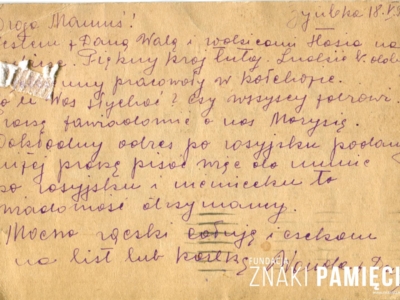 Droga Mamuś!
Jestem z Daną Walą i rodzicami
Piękny kraj tutaj. Ludzie b. dobrzy
my pracowały w kołchozie.
Co u Was słychać? Czy wszyscy zdrowi.
Proszę zawiadomić o nas Marysię.
Dokładny adres po rosyjsku podany
niżej proszę pisać więc do mnie
po rosyjsku i niemiecku to
wiadomość otrzymamy.
Mocno rączki całuję i czekam
na list lub kartkę
FUNDACJA
ZNAKI PAMIĘCI